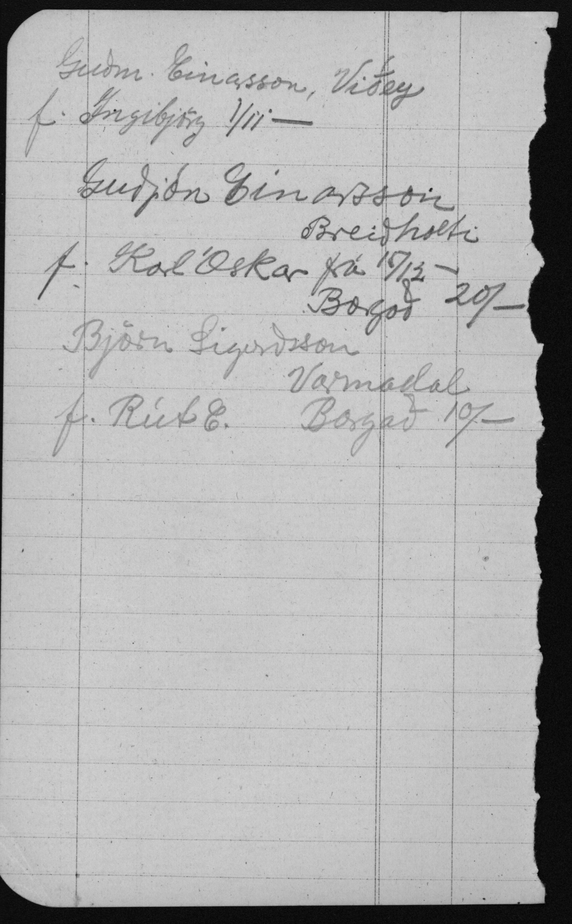 Guðm. Einarsson, Viðey
f. Ingibjörg 1/11 —
Guðjón Einarsson
Breiðholti
f. Karl Óskar frá 15/12 —
Borgað 20/—
Björn Sigurdsson
Varmadal
f. Rút E. Borgað 10/—